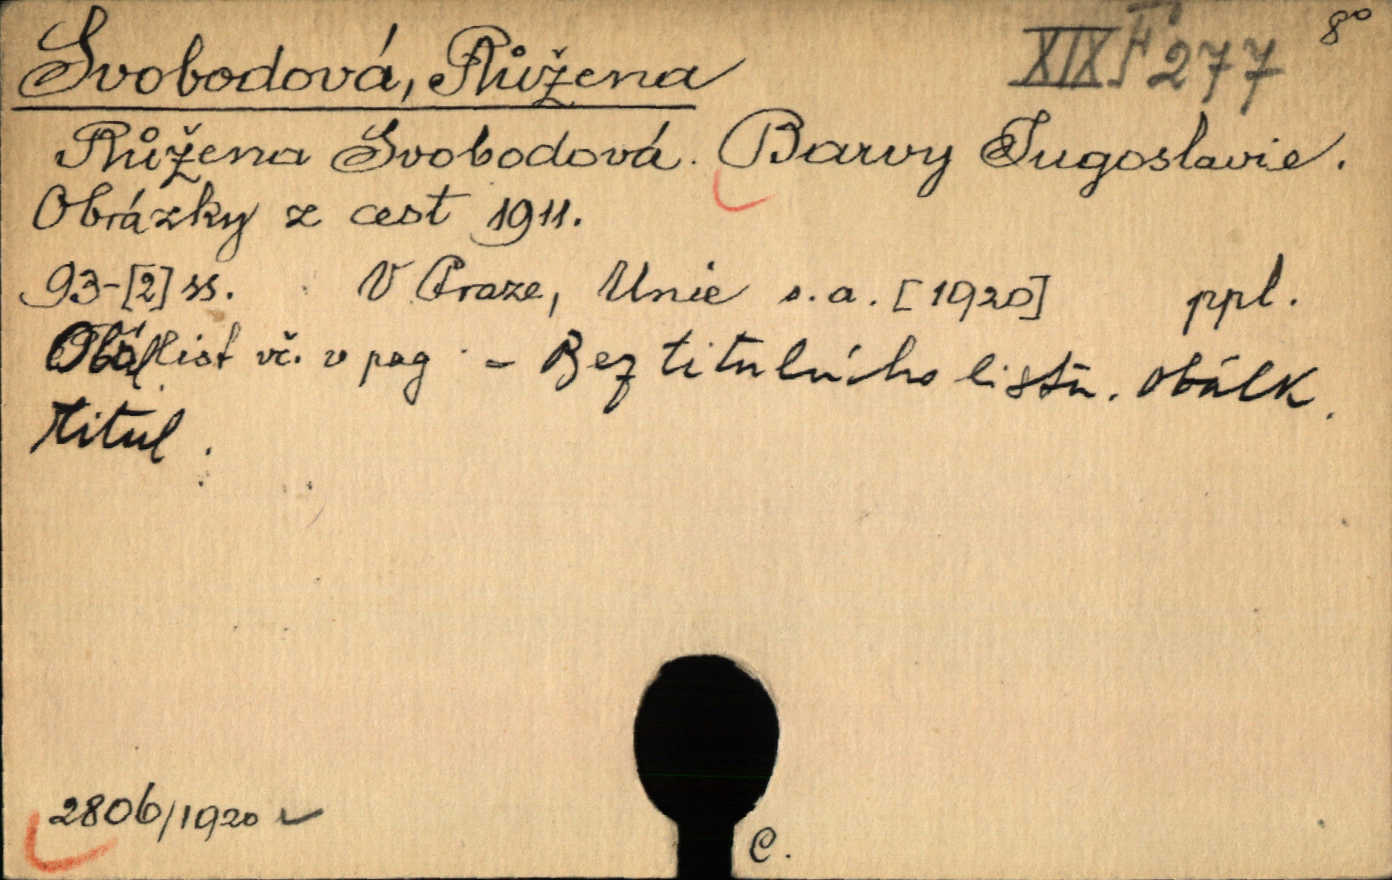 Svobodová, Růžena XIX F 277 8°
Růžena Svobodová. Barvy Jugoslavie.
Obrázky z cest 1911.
93-[2] ss. V Praze, Unie s.a. [1920] ppl.
Obál list vč. v pag. - Bez titulního listu. obálk.
titul.
2806/1920
C.